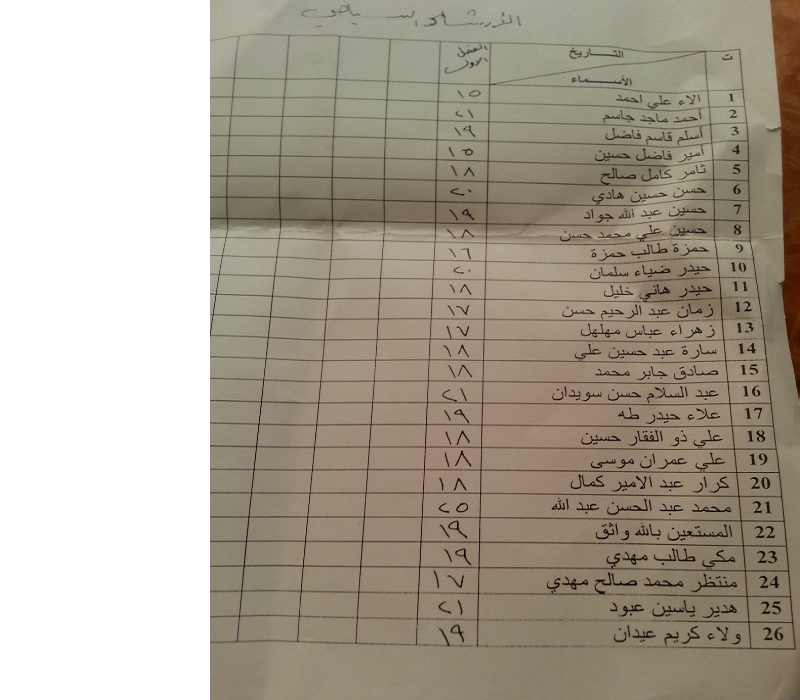 الأرشاد السياحي
ت التاريخ الفصل الاول
الأسماء
1 الاء علي احمد ١٥
2 أحمد ماجد جاسم ٢١
3 أسلم قاسم فاضل ١٩
4 أمير فاضل حسين ١٥
5 ثامر كامل صالح ١٨
6 حسن حسين هادي ٢٠
7 حسين عبد الله جواد ١٩
8 حسين علي محمد حسن ١٨
9 حمزة طالب حمزة ١٦
10 حيدر ضياء سلمان ٢٠
11 حيدر هاني خليل ١٨
12 زمان عبد الرحيم حسن ١٧
13 زهراء عباس مهلهل ١٧
14 سارة عبد حسين علي ١٨
15 صادق جابر محمد ١٨
16 عبد السلام حسن سويدان ٢١
17 علاء حيدر طه ١٩
18 علي ذو الفقار حسين ١٨
19 علي عمران موسى ١٨
20 كرار عبد الامير كمال ١٨
21 محمد عبد الحسن عبد الله ٢٥
22 المستعين بالله واثق ١٩
23 مكي طالب مهدي ١٩
24 منتظر محمد صالح مهدي ١٧
25 هدير ياسين عبود ٢١
26 ولاء كريم عيدان ١٩